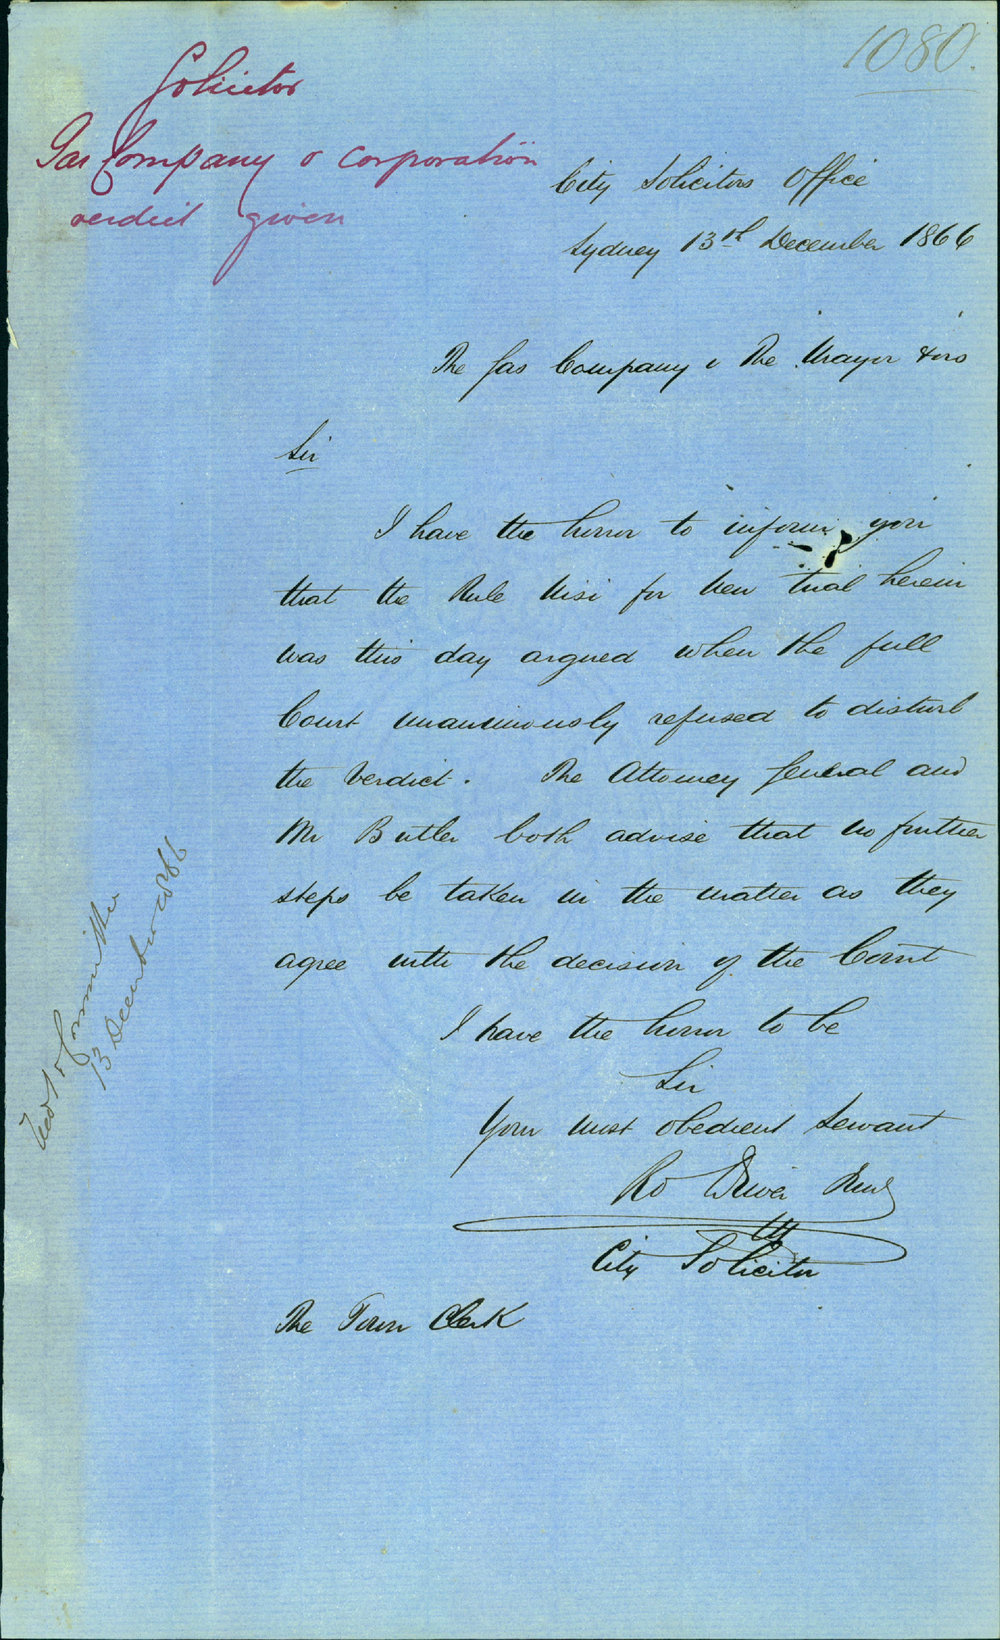 1080.
Solicitor
Gas Company v Corporation
verdict given
City Solicitors Office
Sydney 13th December 1866
The Gas Company v The Mayor &ors
Sir
I have the honor to inform you
that the Rule Nisi for New trial herein
was this day argued when the full
Court unanimously refused to disturb
the Verdict. The Attorney General and
Mr Butler both advise that no further
steps be taken in the matter as they
agree with the decision of the Court
I have the honor to be
Sir
Your most obedient Servant
Ro Driver Junr
City Solicitor
The Town Clerk
Committee
13 December 1866